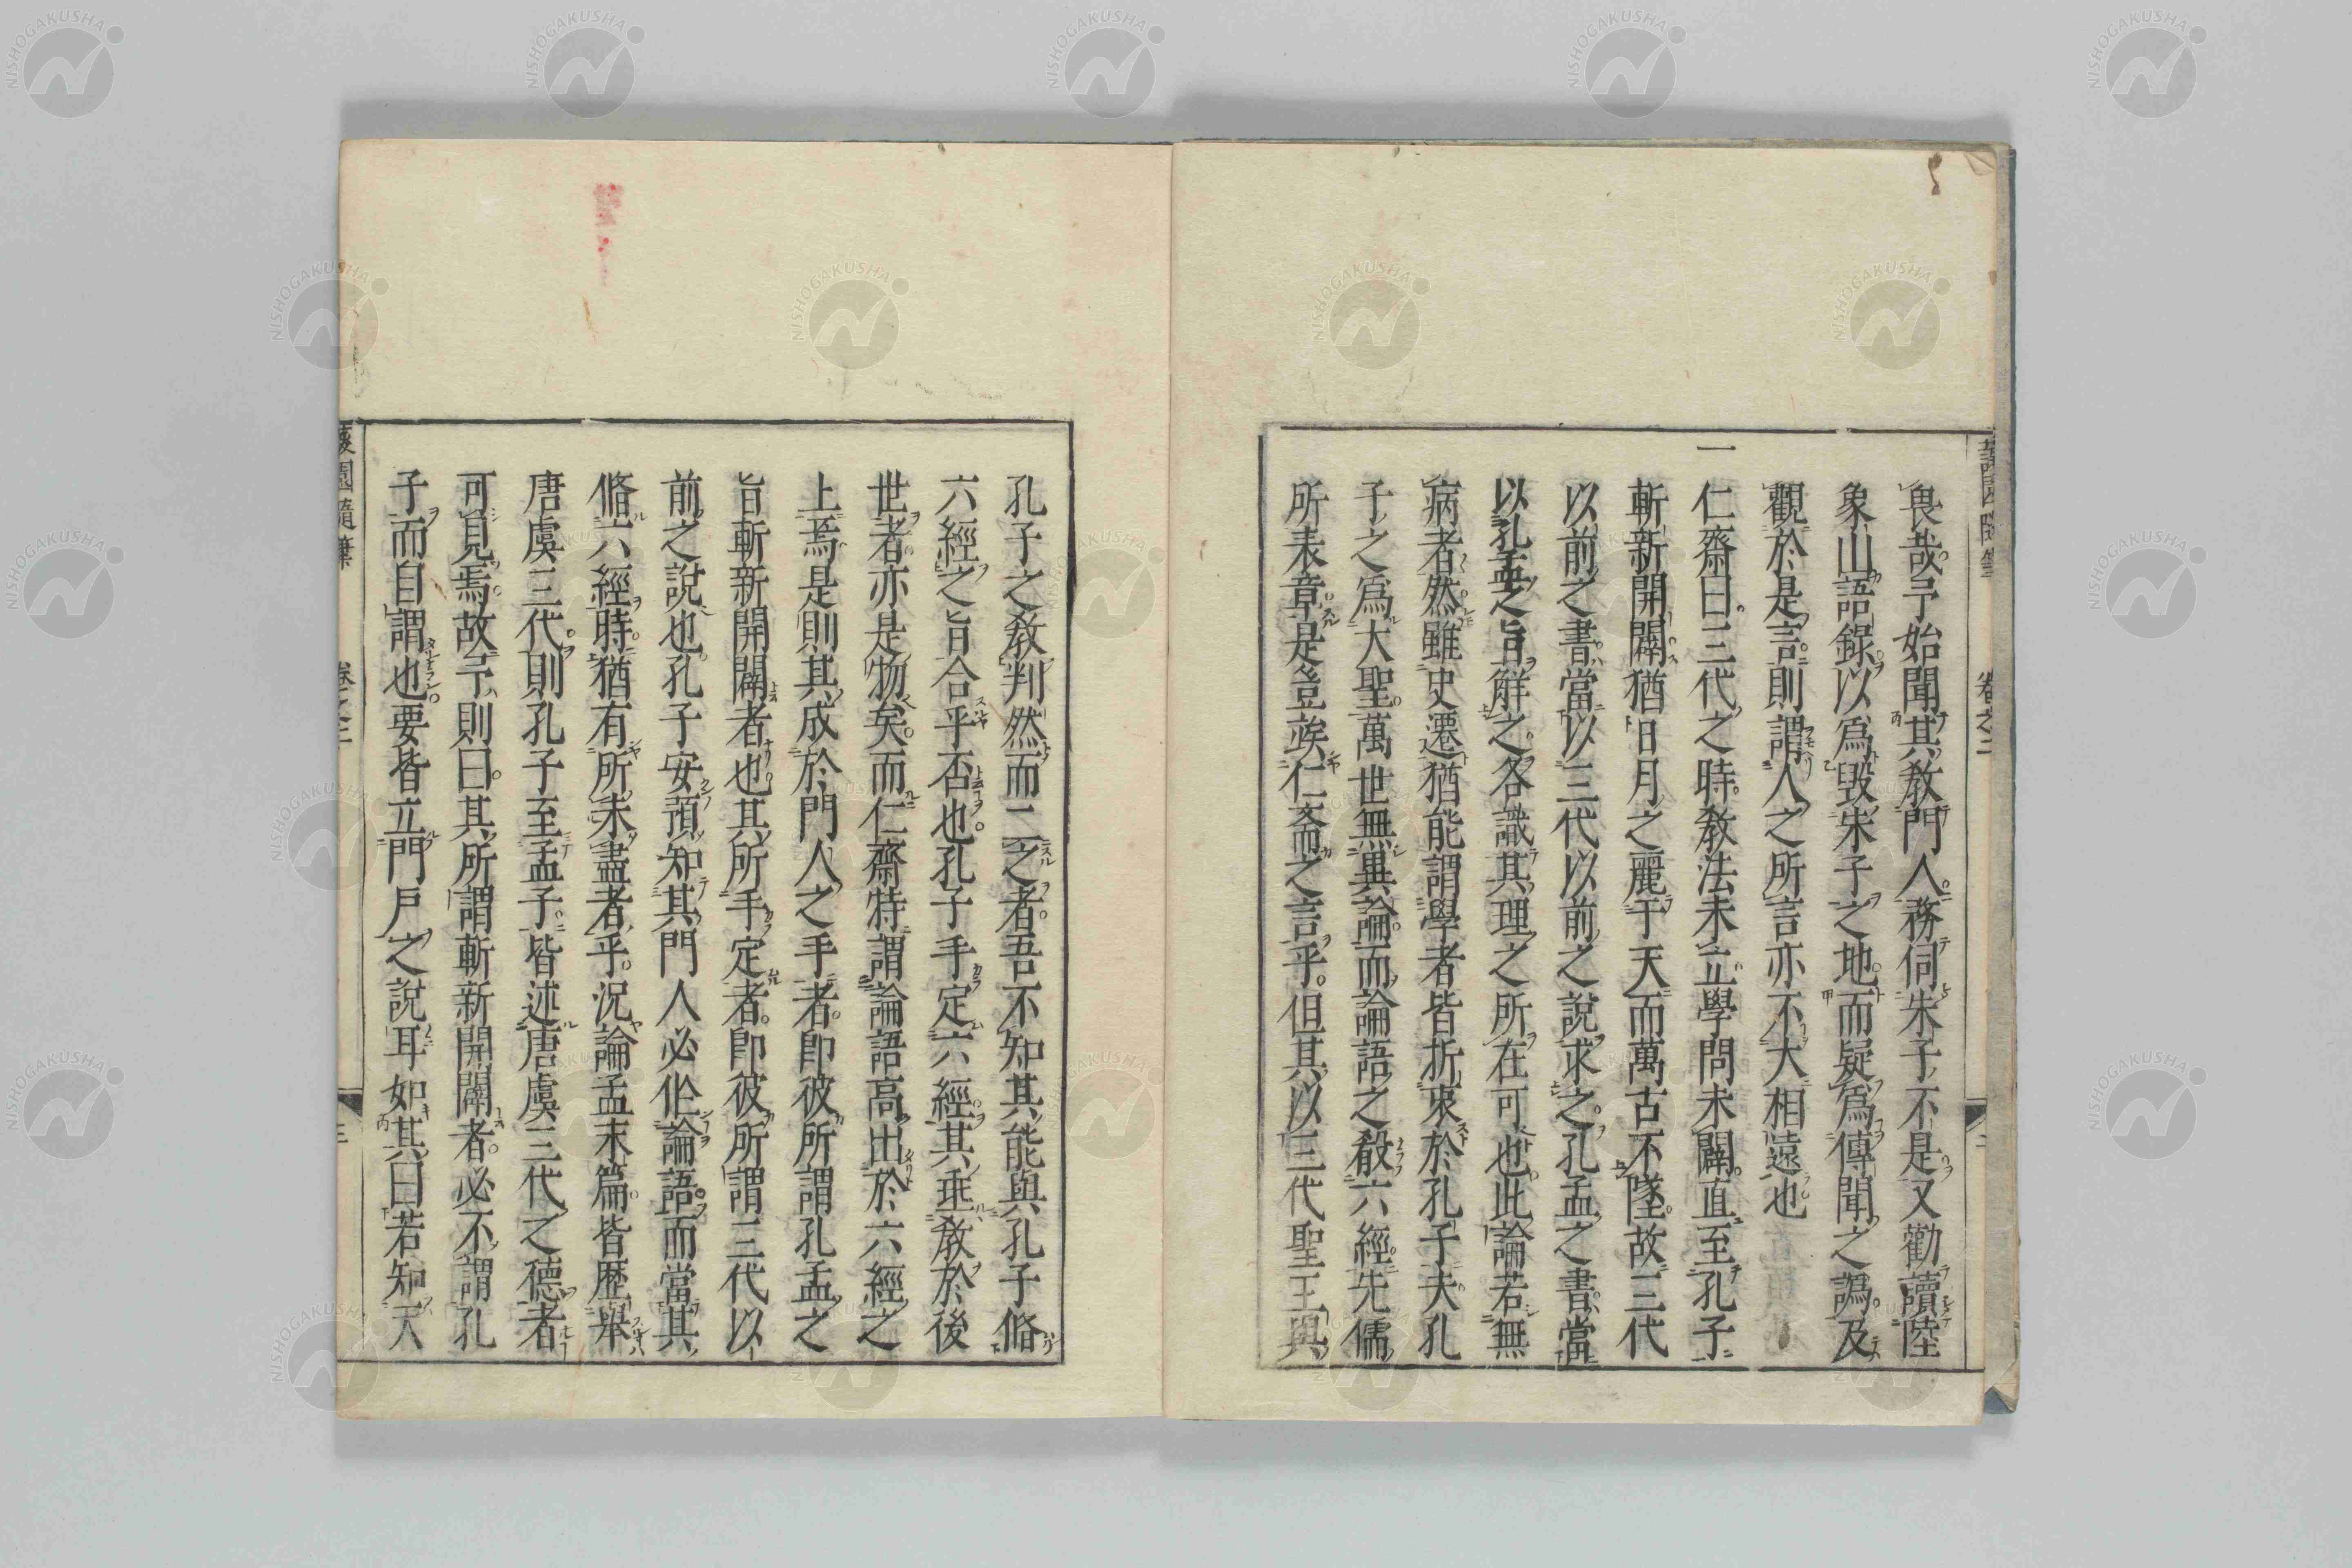 畏哉予始聞其教門人務伺朱子不是又勸讀陸
象山語錄以爲毀朱子之地而疑爲傳聞之譌及
觀於是言則謂人之所言亦不大相遠也
一
仁齋曰三代之時教法未立學問未闢直至孔子
斬新開闢猶日月之麗于天而萬古不墜故三代
以前之書當以三代以前之說求之孔孟之書當
以孔孟之旨解之各識其理之所在可也此論若無
病者然雖史遷猶能謂學者皆折衷於孔子夫孔
子之爲大聖萬世無異論而論語之殽六經先儒
所表章是豈竢仁斎之言乎但其以三代聖王與
卷之二
二
孔子之教判然而二之者吾不知其能與孔子脩
六經之旨合乎否也孔子手定六經其垂教於後
世者亦是物矣而仁齋特謂論語高出於六經之
上焉是則其成於門人之手者卽彼所謂孔孟之
旨斬新開闢者也其所手定者卽彼所謂三代以
前之說也孔子安預知其門人必作論語而當其
脩六經時猶有所未盡者乎況論孟末篇皆歷舉
唐虞三代則孔子至孟子皆述唐虞三代之德者
可見焉故予則曰其所謂斬新開闢者必不謂孔
子而自謂也要皆立門戶之說耳如其曰若知天
蘐園隨筆
卷之二
三
NISHOGAKUSHA